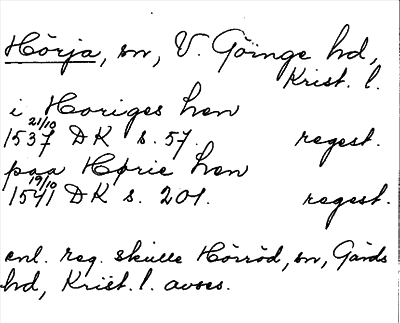 Hörja, sn, V. Göinge hd,
Krist. l.
i Horiges hen
21/10
1537 DK s. 57. regest.
paa Hørie hen
19/10
1541 DK s. 201. regest.
enl. reg. skulle Hörröd, sn, Gärds
hd, Krist. l. avses.